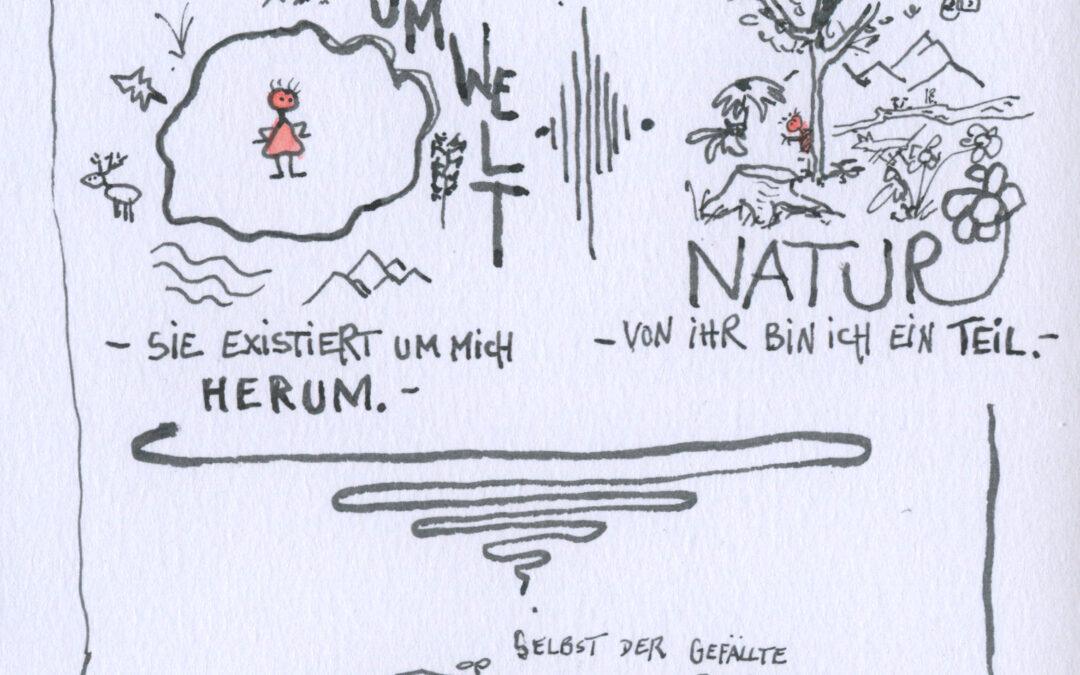 UM
WELT
NATUR
- SIE EXISTIERT UM MICH
HERUM. -
- VON IHR BIN ICH EIN TEIL. -
SELBST DER GEFÄLLTE